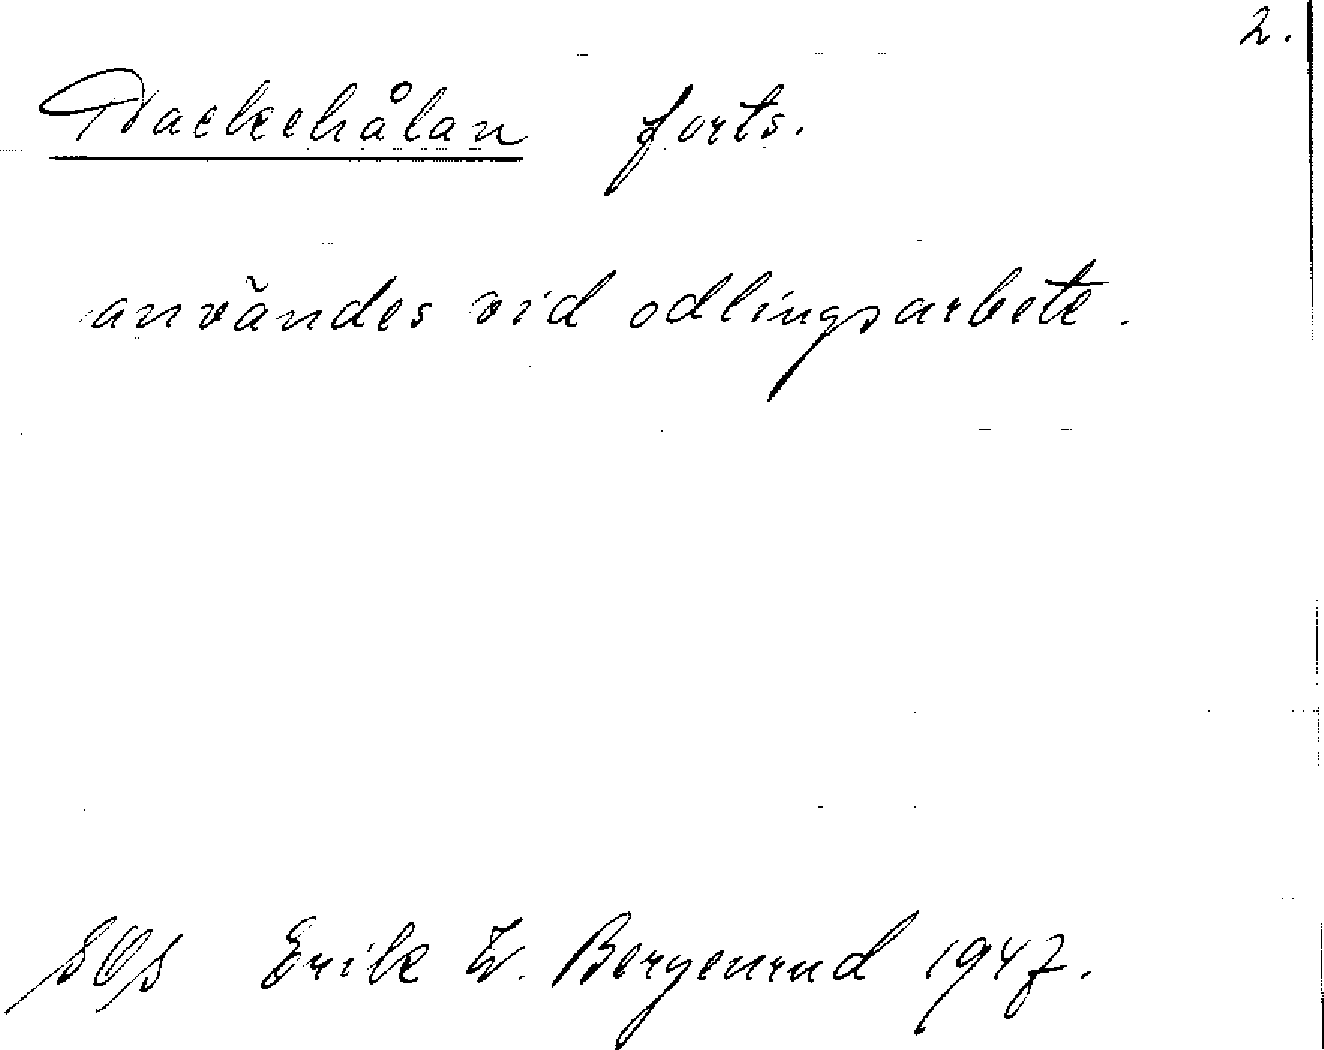 2.
Nackehålan forts.
användes vid odlingsarbete.
Erik W. Bergenrud 1947.